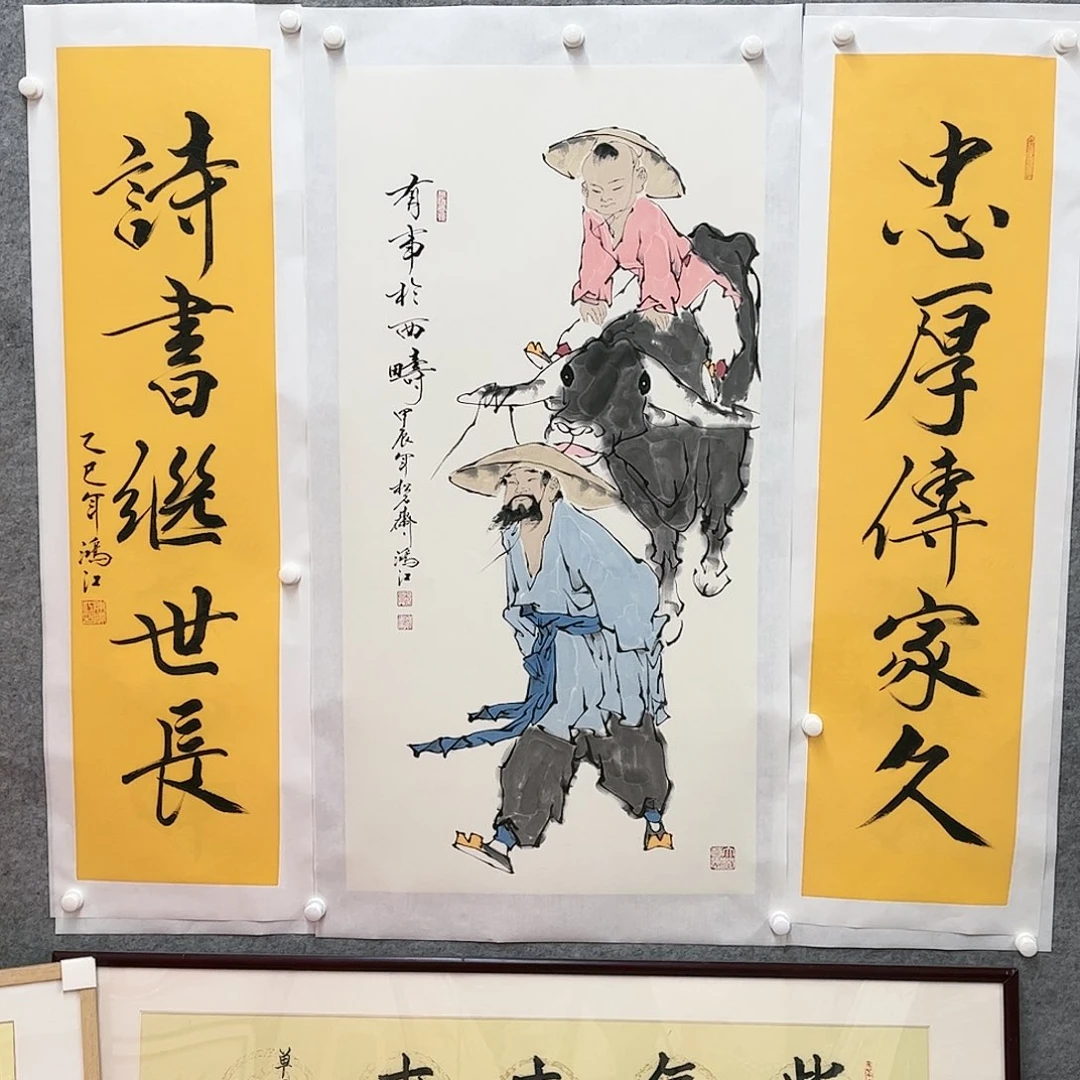 忠厚傳家久
有事於西疇
甲辰年松石齋鴻江
詩書繼世長
乙巳年鴻江